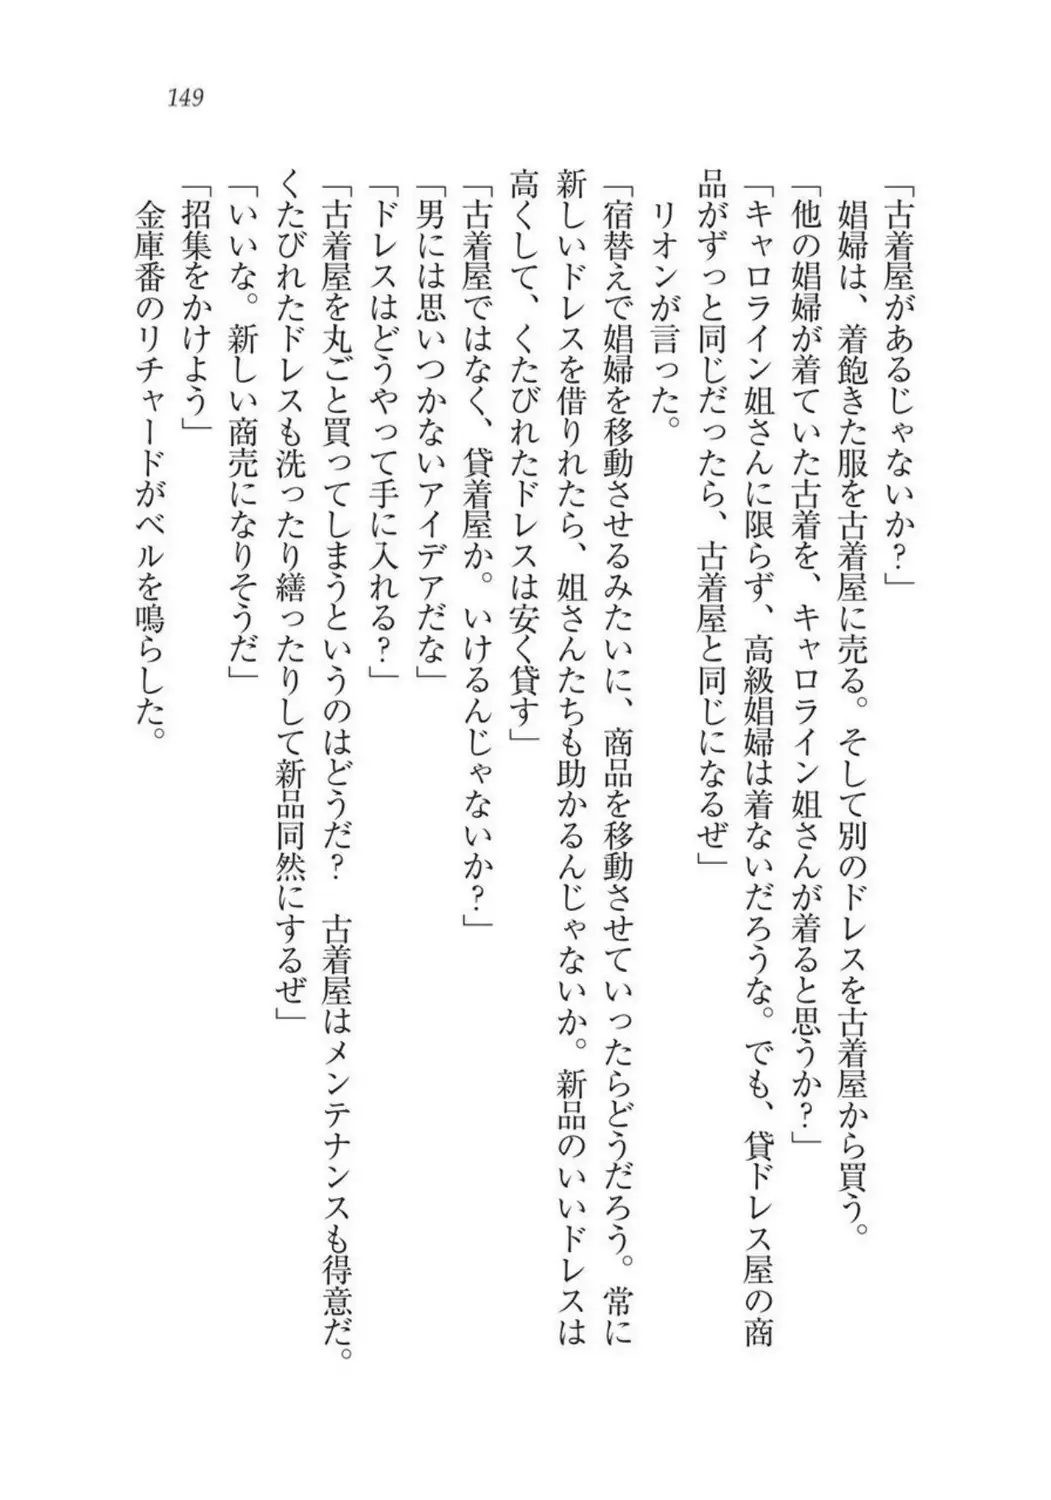 149
「古着屋があるじゃないか？」
娼婦は、着飽きた服を古着屋に売る。そして別のドレスを古着屋から買う。
「他の娼婦が着ていた古着を、キャロライン姐さんが着ると思うか？」
「キャロライン姐さんに限らず、高級娼婦は着ないだろうな。でも、貸ドレス屋の商
品がずっと同じだったら、古着屋と同じになるぜ」
リオンが言った。
「宿替えで娼婦を移動させるみたいに、商品を移動させていったらどうだろう。常に
新しいドレスを借りれたら、姐さんたちも助かるんじゃないか。新品のいいドレスは
高くして、くたびれたドレスは安く貸す」
「古着屋ではなく、貸着屋か。いけるんじゃないか？」
「男には思いつかないアイデアだな」
「ドレスはどうやって手に入れる？」
「古着屋を丸ごと買ってしまうというのはどうだ？　古着屋はメンテナンスも得意だ。
くたびれたドレスも洗ったり繕ったりして新品同然にするぜ」
「いいな。新しい商売になりそうだ」
「招集をかけよう」
金庫番のリチャードがベルを鳴らした。